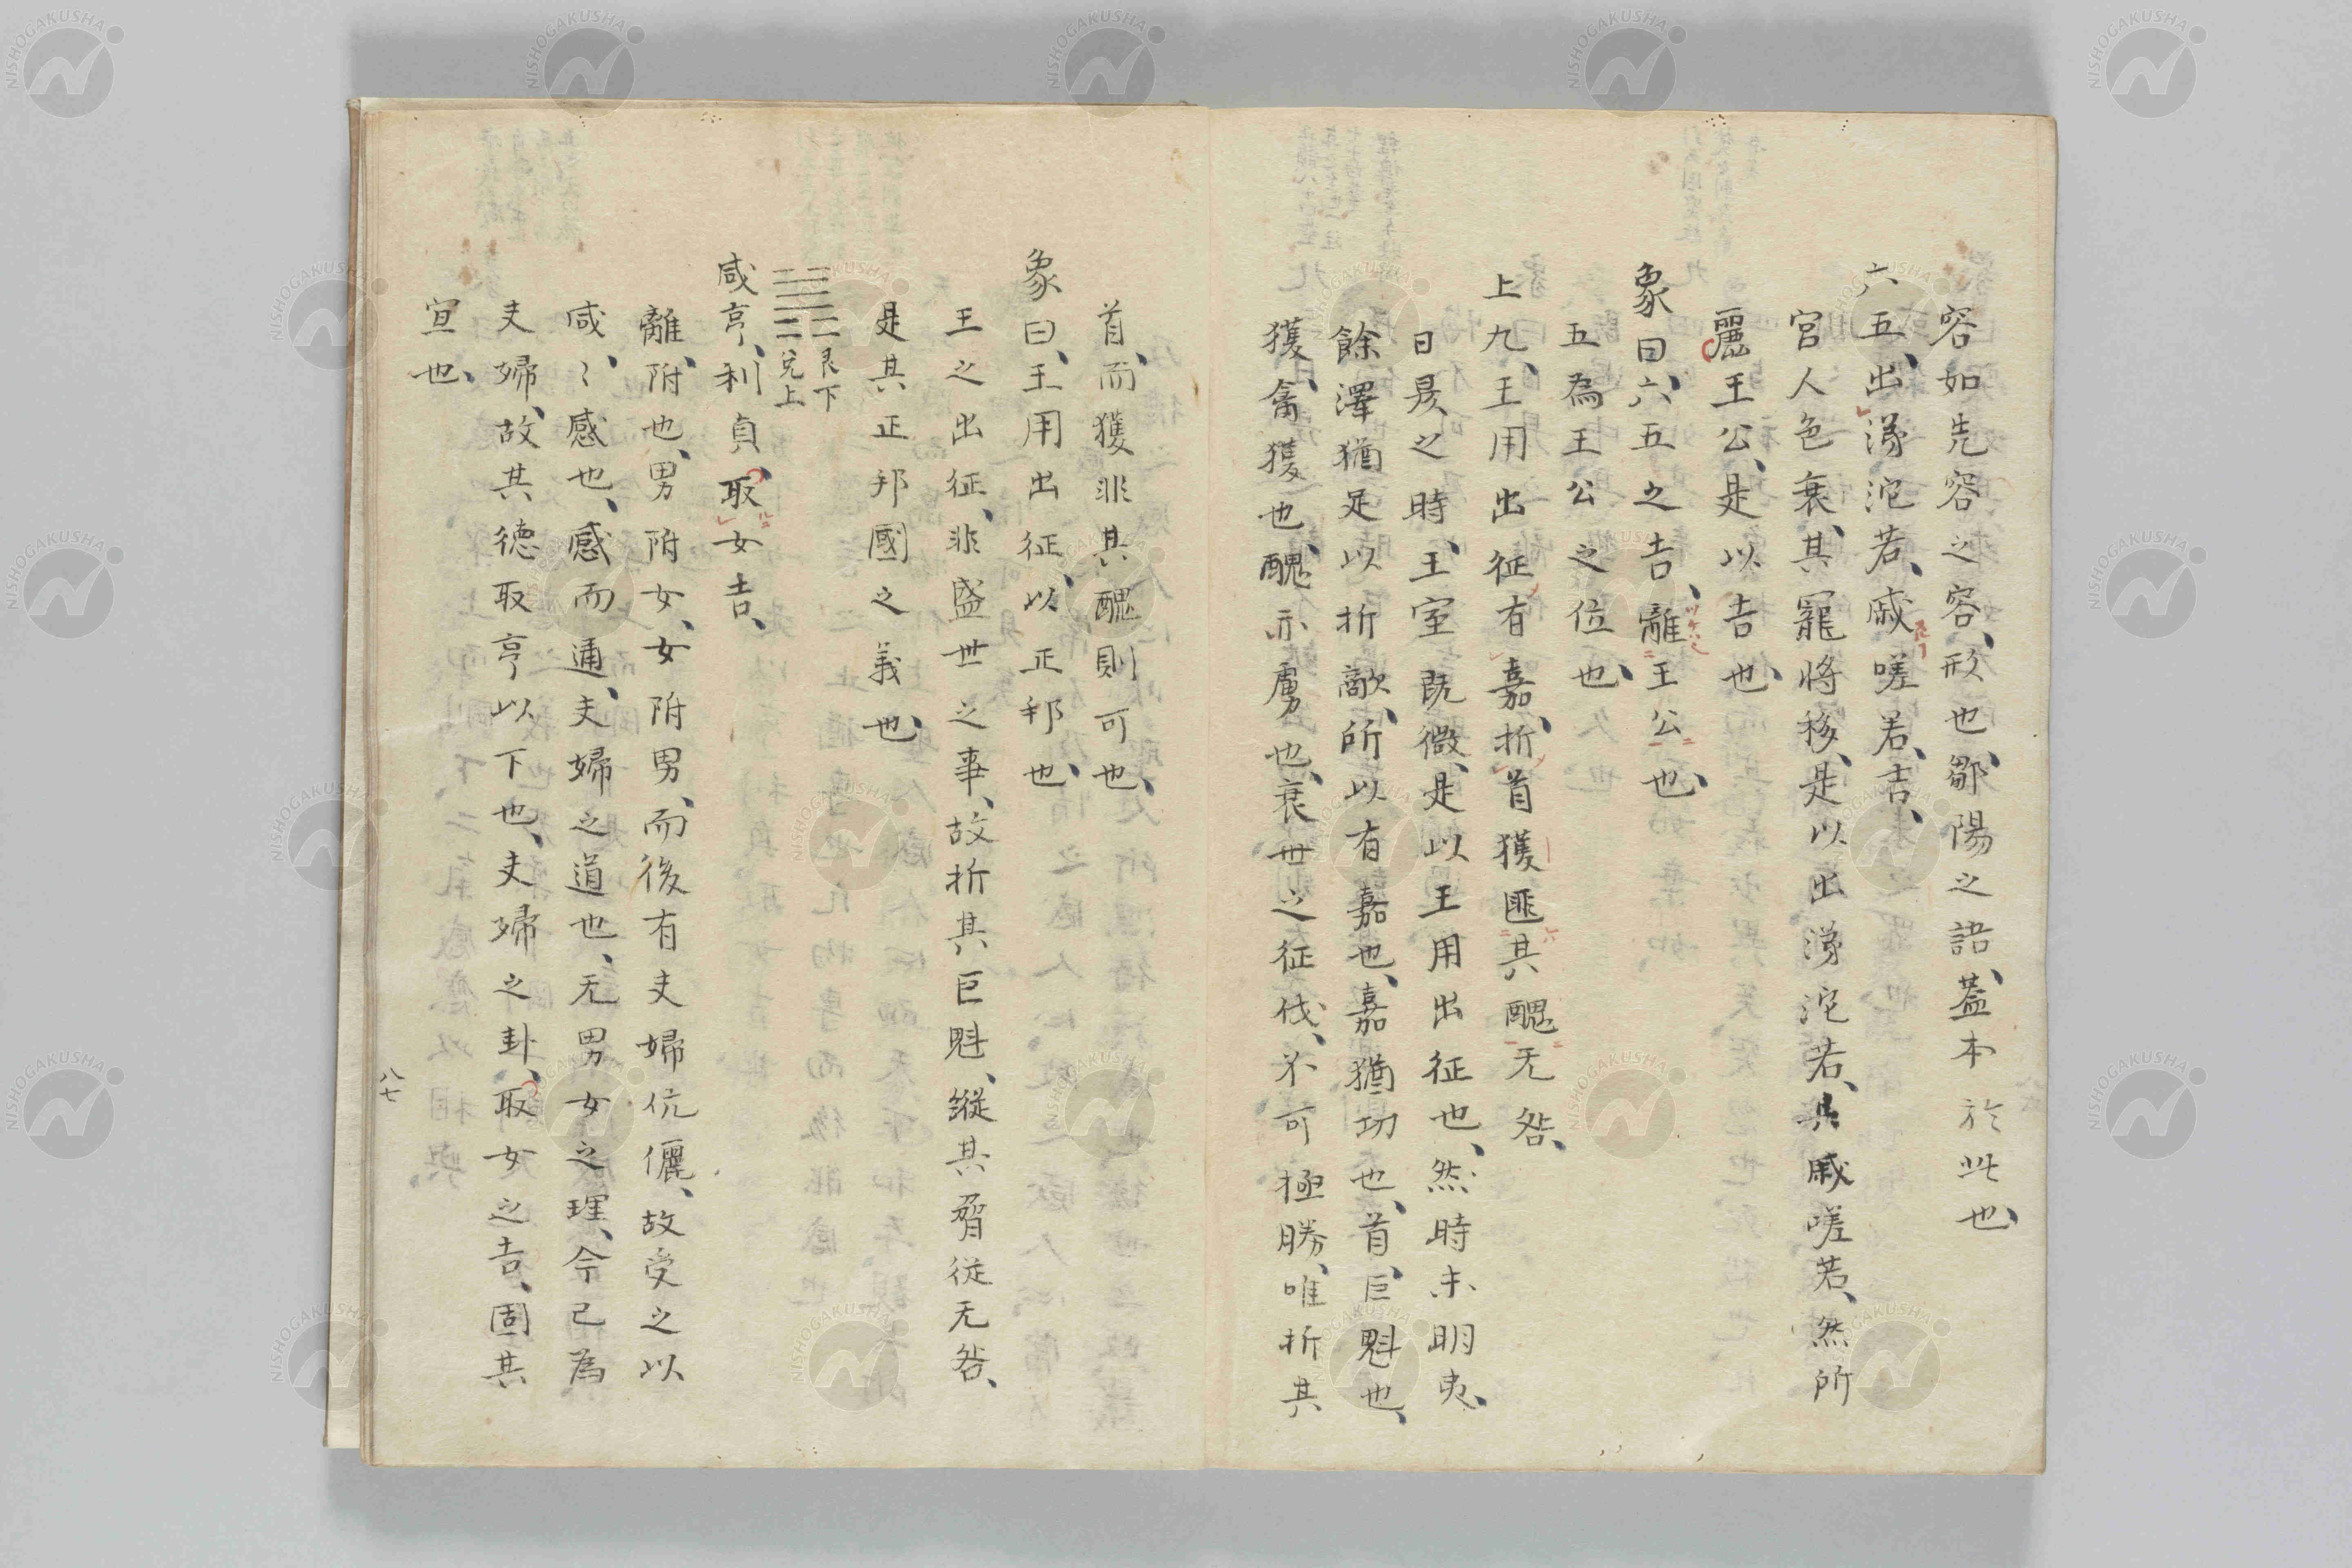 容如先容之容、形也、鄒陽之語、蓋本於此也、
六五、出涕沱若、戚嗟若、吉、
宮人色衰、其寵將移、是以出涕沱若、具戚嗟若、然所
麗王公、是以吉也、
象曰、六五之吉、離王公也、
五為王公之位也、
上九、王用出征有嘉、折首獲匪其醜无咎、
日昃之時、王室既微、是以王用出征也、然時未明夷、
餘澤猶足以折敵、所以有嘉也、嘉猶功也、首、巨魁也、
獲、禽獲也、醜、示虜也、衰世之征伐、不可極勝、唯折其
首、而獲非其醜則可也、
象曰、王用出征、以正邦也、
王之出征、非盛世之事、故折其巨魁、縱其脅從无咎、
是其正邦國之義也、
艮下
兌上
咸亨、利貞、取女吉、
離、附也、男附女、女附男、而後有夫婦伉儷、故受之以
咸、〻感也、感而通、夫婦之道也、无男女之理、今已為
夫婦、故其德取亨以下也、夫婦之卦、取女之吉、固其
宜也、
八七
NISHOGAKUSHA